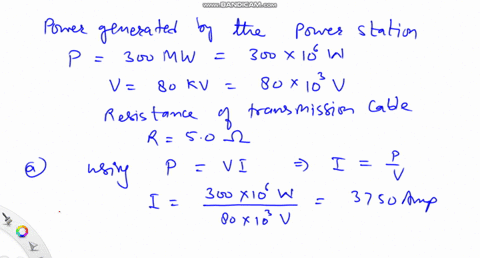 BANDICAM.COM
Power generated by the power station
P = 300 MW = 300 × 10⁶ W
V = 80 KV = 80 × 10³ V
Resistance of transmission Cable
R = 5.0 Ω
a) using P = VI ⇒ I = P/V
I = 300 × 10⁶ W / 80 × 10³ V = 3750 Amp